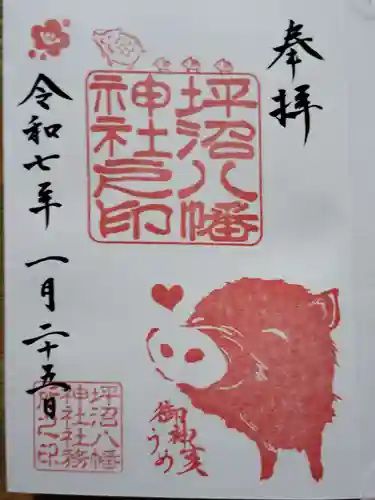 奉拝
坪沼八幡
神社之印
令和七年 一月二十五日
御神実
うめ
坪沼八幡
神社社務
所之印